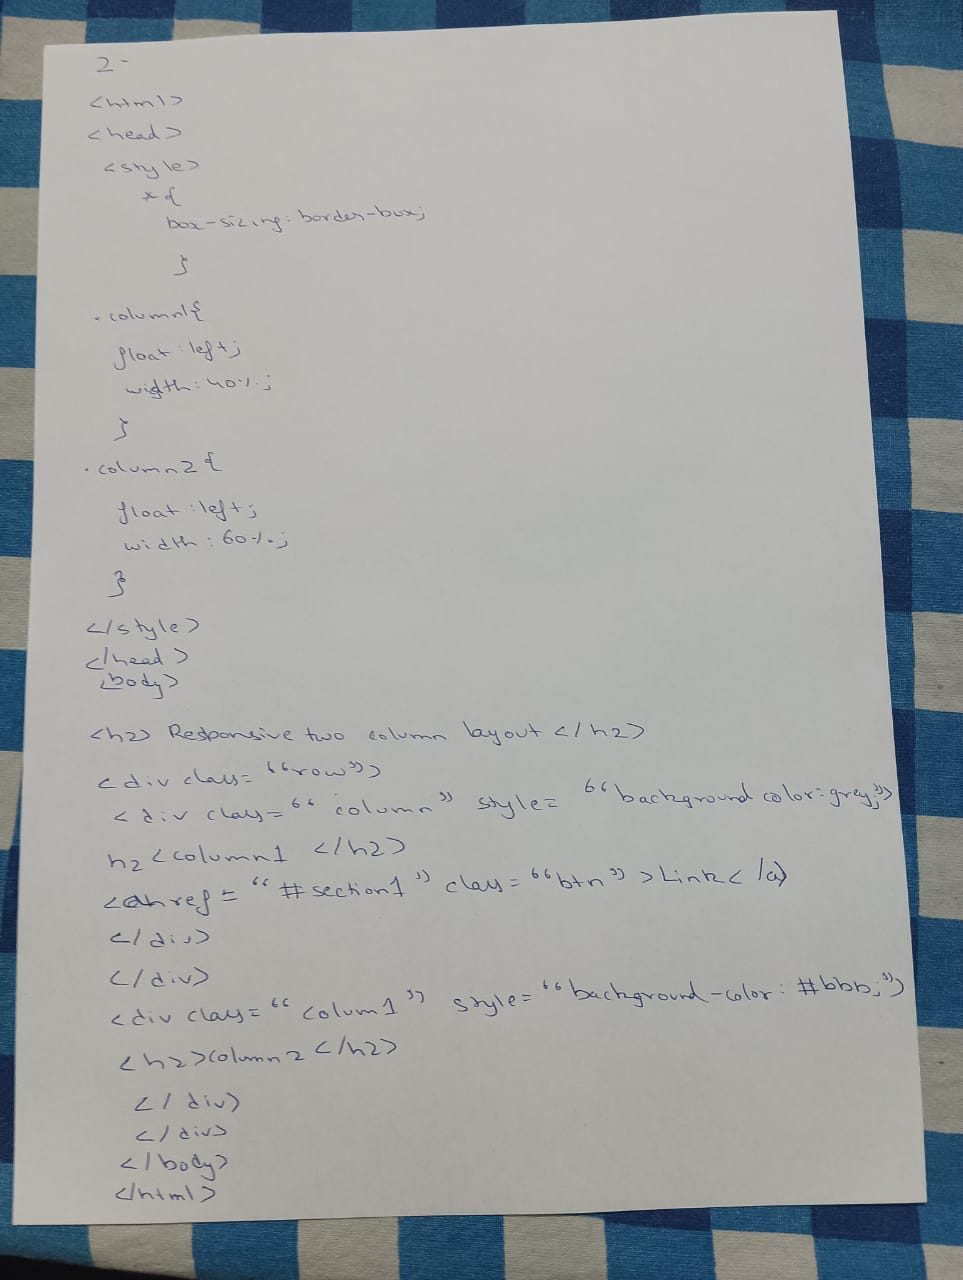 2-
<html>
<head>
<style>
*{
box-sizing: border-box;
}
.column1{
float:left;
width:40%;
}
.column2{
float:left;
width:60%;
}
</style>
</head>
<body>
<h2> Responsive two column layout </h2>
<div class="row">
<div class="column" style="background color:grey;">
h2<column1 </h2>
<ahref="#section1" class="btn">Link</a>
</div>
</div>
<div class="colum1" style="background-color:#bbb;">
<h2>column2</h2>
</div>
</div>
</body>
</html>